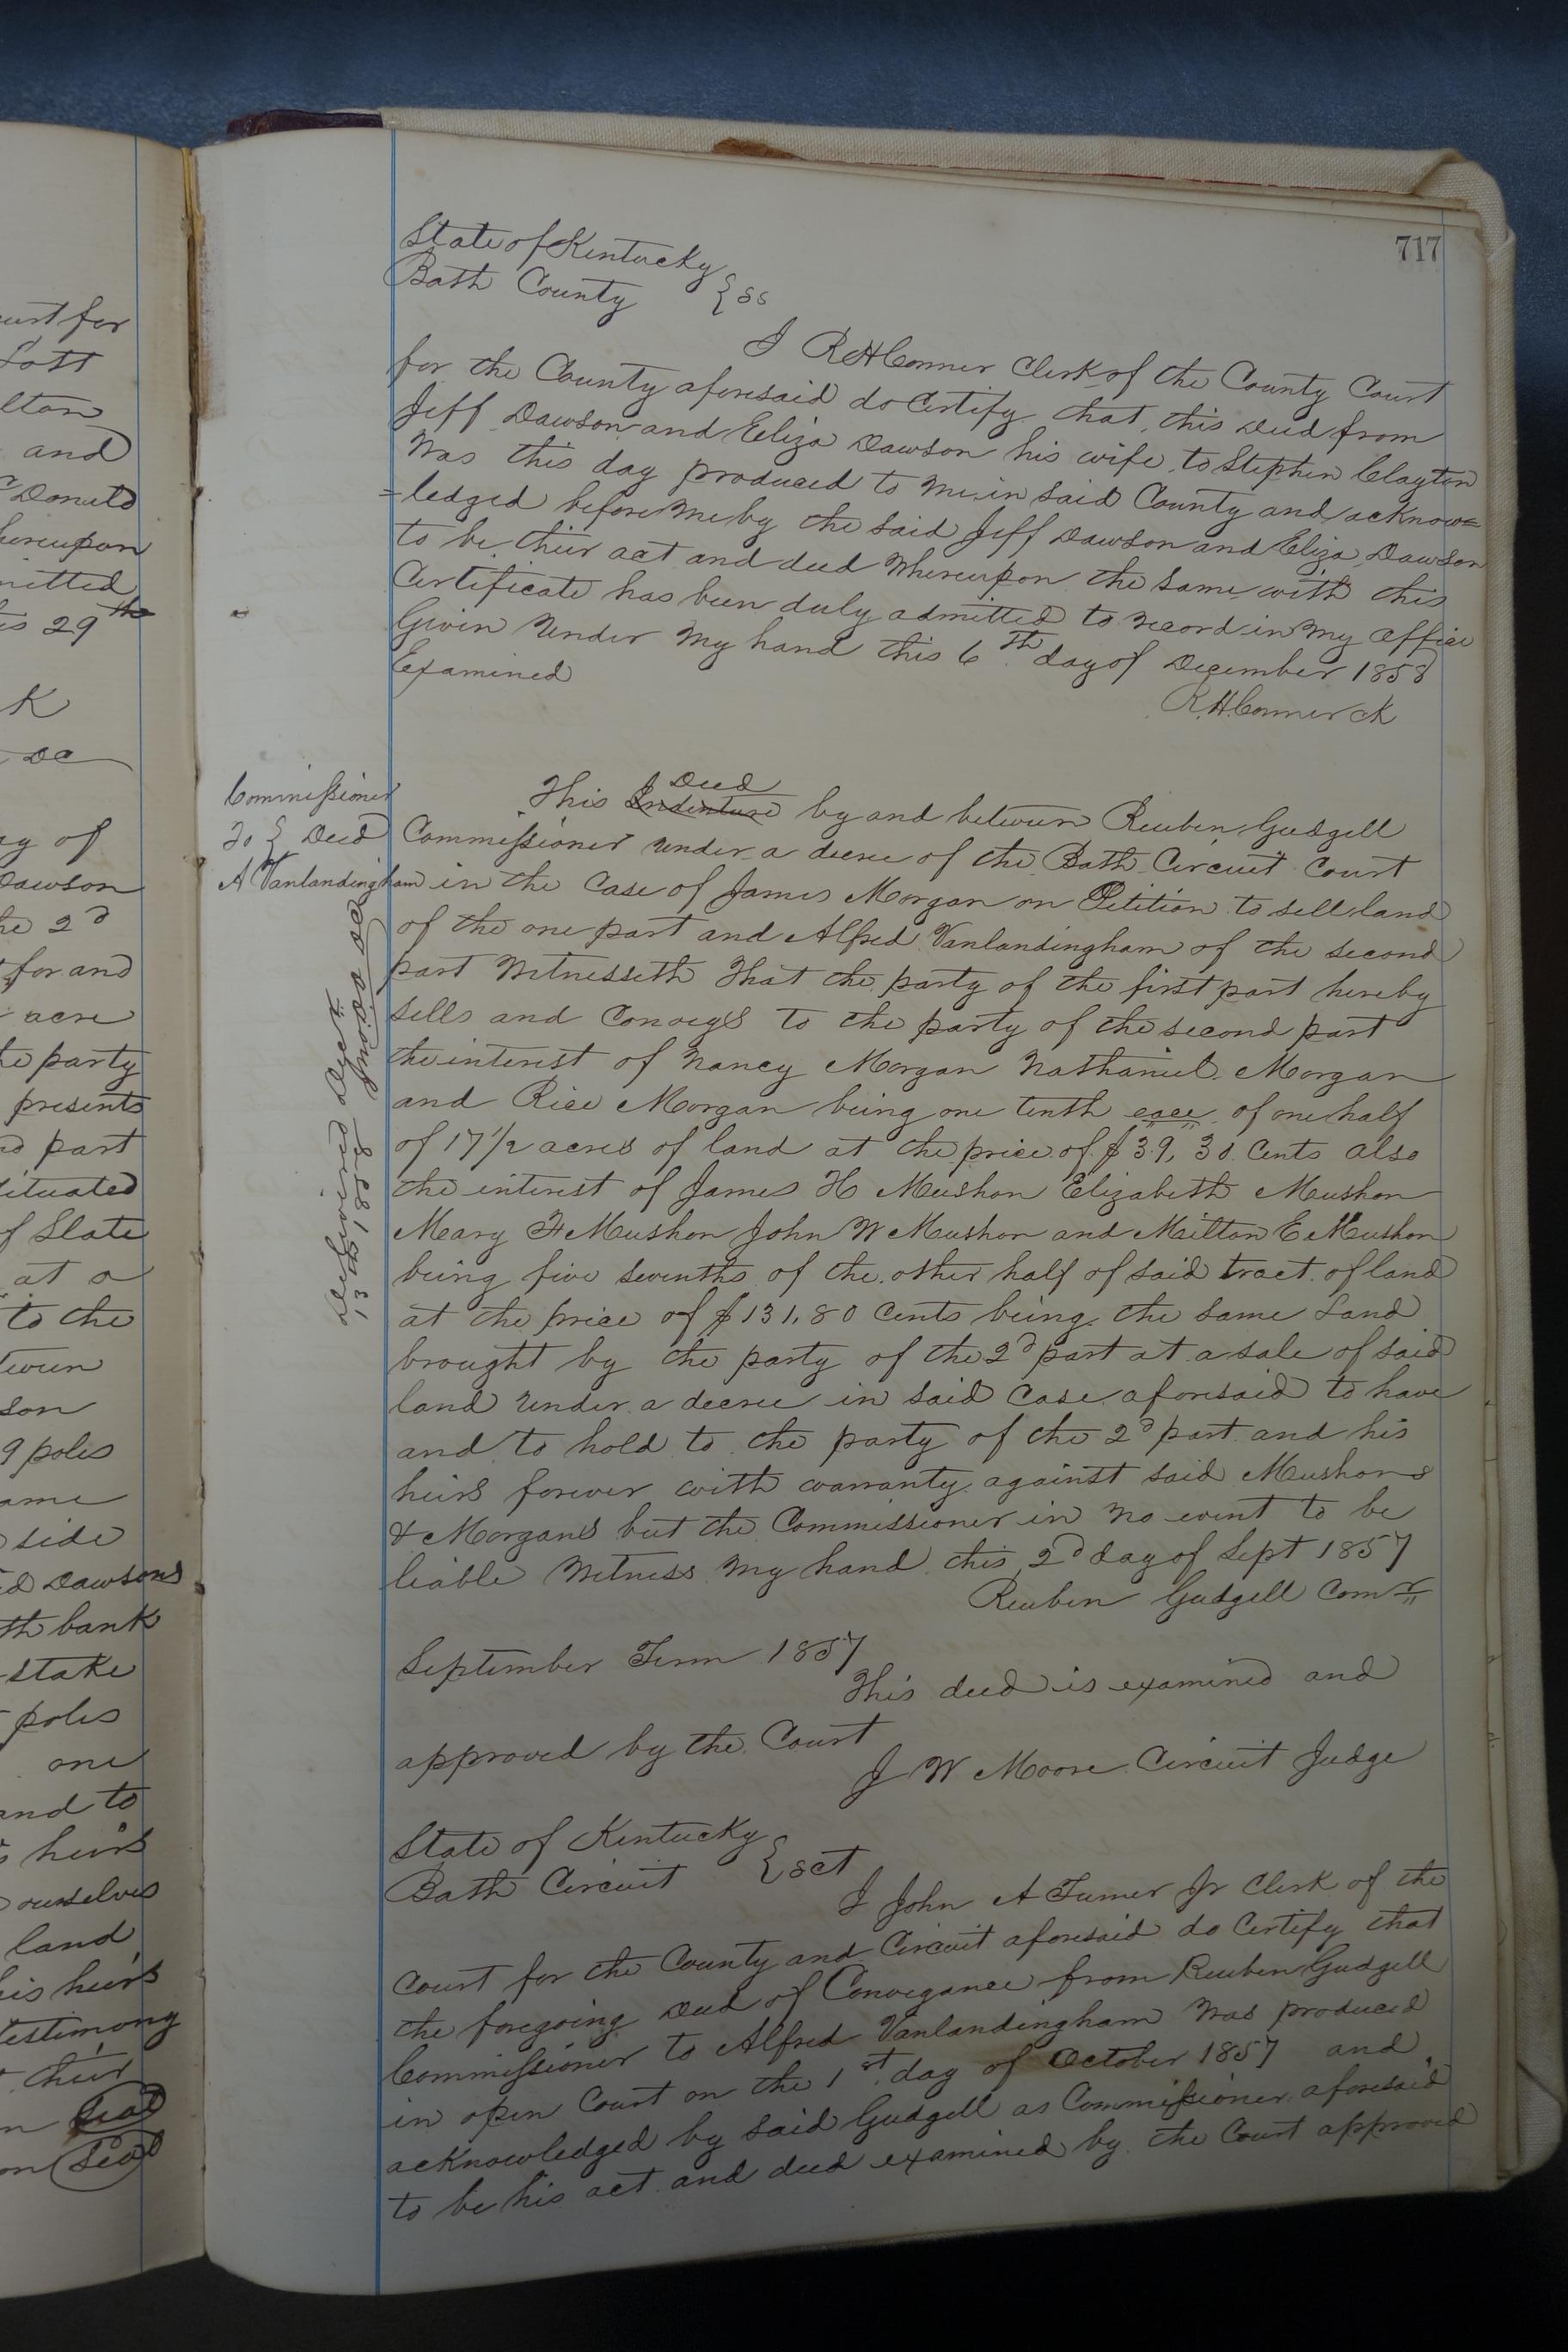 urt for
Lott
lton
and
Donald
hereupon
mitted
is 29th
K
DC
ay of
Dawson
he 2d
for and
acre
he party
presents
nd part
situated
f Slate
at a
to the
tween
son
9 poles
ame
side
d Dawsons
th bank
stake
poles
one
and to
s heirs
ourselves
land
his heirs
Testimony
their
n Seal
on Seal
717
State of Kentucky
Bath County } ss
I R H Conner Clerk of the County Court
for the County aforesaid do Certify that this Deed from
Jeff Dawson and Eliza Dawson his wife to Stephen Clayton
Was this day produced to me in said County and acknow=
=ledged before me by the said Jeff Dawson and Eliza Dawson
to be their act and deed Whereupon the same with this
Certificate has been duly admitted to record in my office
Given Under My hand this 6th day of December 1858
Examined
R.H. Conner ck
Commissioner
To } Deed
A Vanlandingham
Delivered
13 1858
This Indenture Deed by and between Reuben Gudgell
Commissioner under a decree of the Bath Circuit Court
in the Case of James Morgan on Petition to sell land
of the one part and Alfred Vanlandingham of the second
part Witnesseth That the party of the first part hereby
sells and Conveys to the party of the second part
the interest of Nancy Morgan Nathaniel Morgan
and Rice Morgan being one tenth eace of one half
of 17 1/2 acres of land at the price of $39,30 Cents also
the interest of James H Mushon Elizabeth Mushon
Mary F Mushon John W Mushon and Milton E Mushon
being five sevenths of the other half of said tract of land
at the price of $131,80 Cents being the same Land
brought by the party of the 2d part at a sale of said
land under a decree in said Case aforesaid to have
and to hold to the party of the 2d part and his
heirs forever with warranty against said Mushons
& Morgans but the Commissioner in no event to be
liable Witness My hand this 2d day of Sept 1857
Reuben Gudgell Comr
September Term 1857
This deed is examined and
approved by the Court
J W Moore Circuit Judge
State of Kentucky
Bath Circuit } sct
I John A Turner Jr Clerk of the
Court for the County and Circuit aforesaid do Certify that
the foregoing Deed of Conveyance from Reuben Gudgell
Commissioner to Alfred Vanlandingham Was produced
in open Court on the 1st day of October 1857 and
acknowledged by said Gudgell as Commissioner aforesaid
to be his act and deed examined by the Court approved